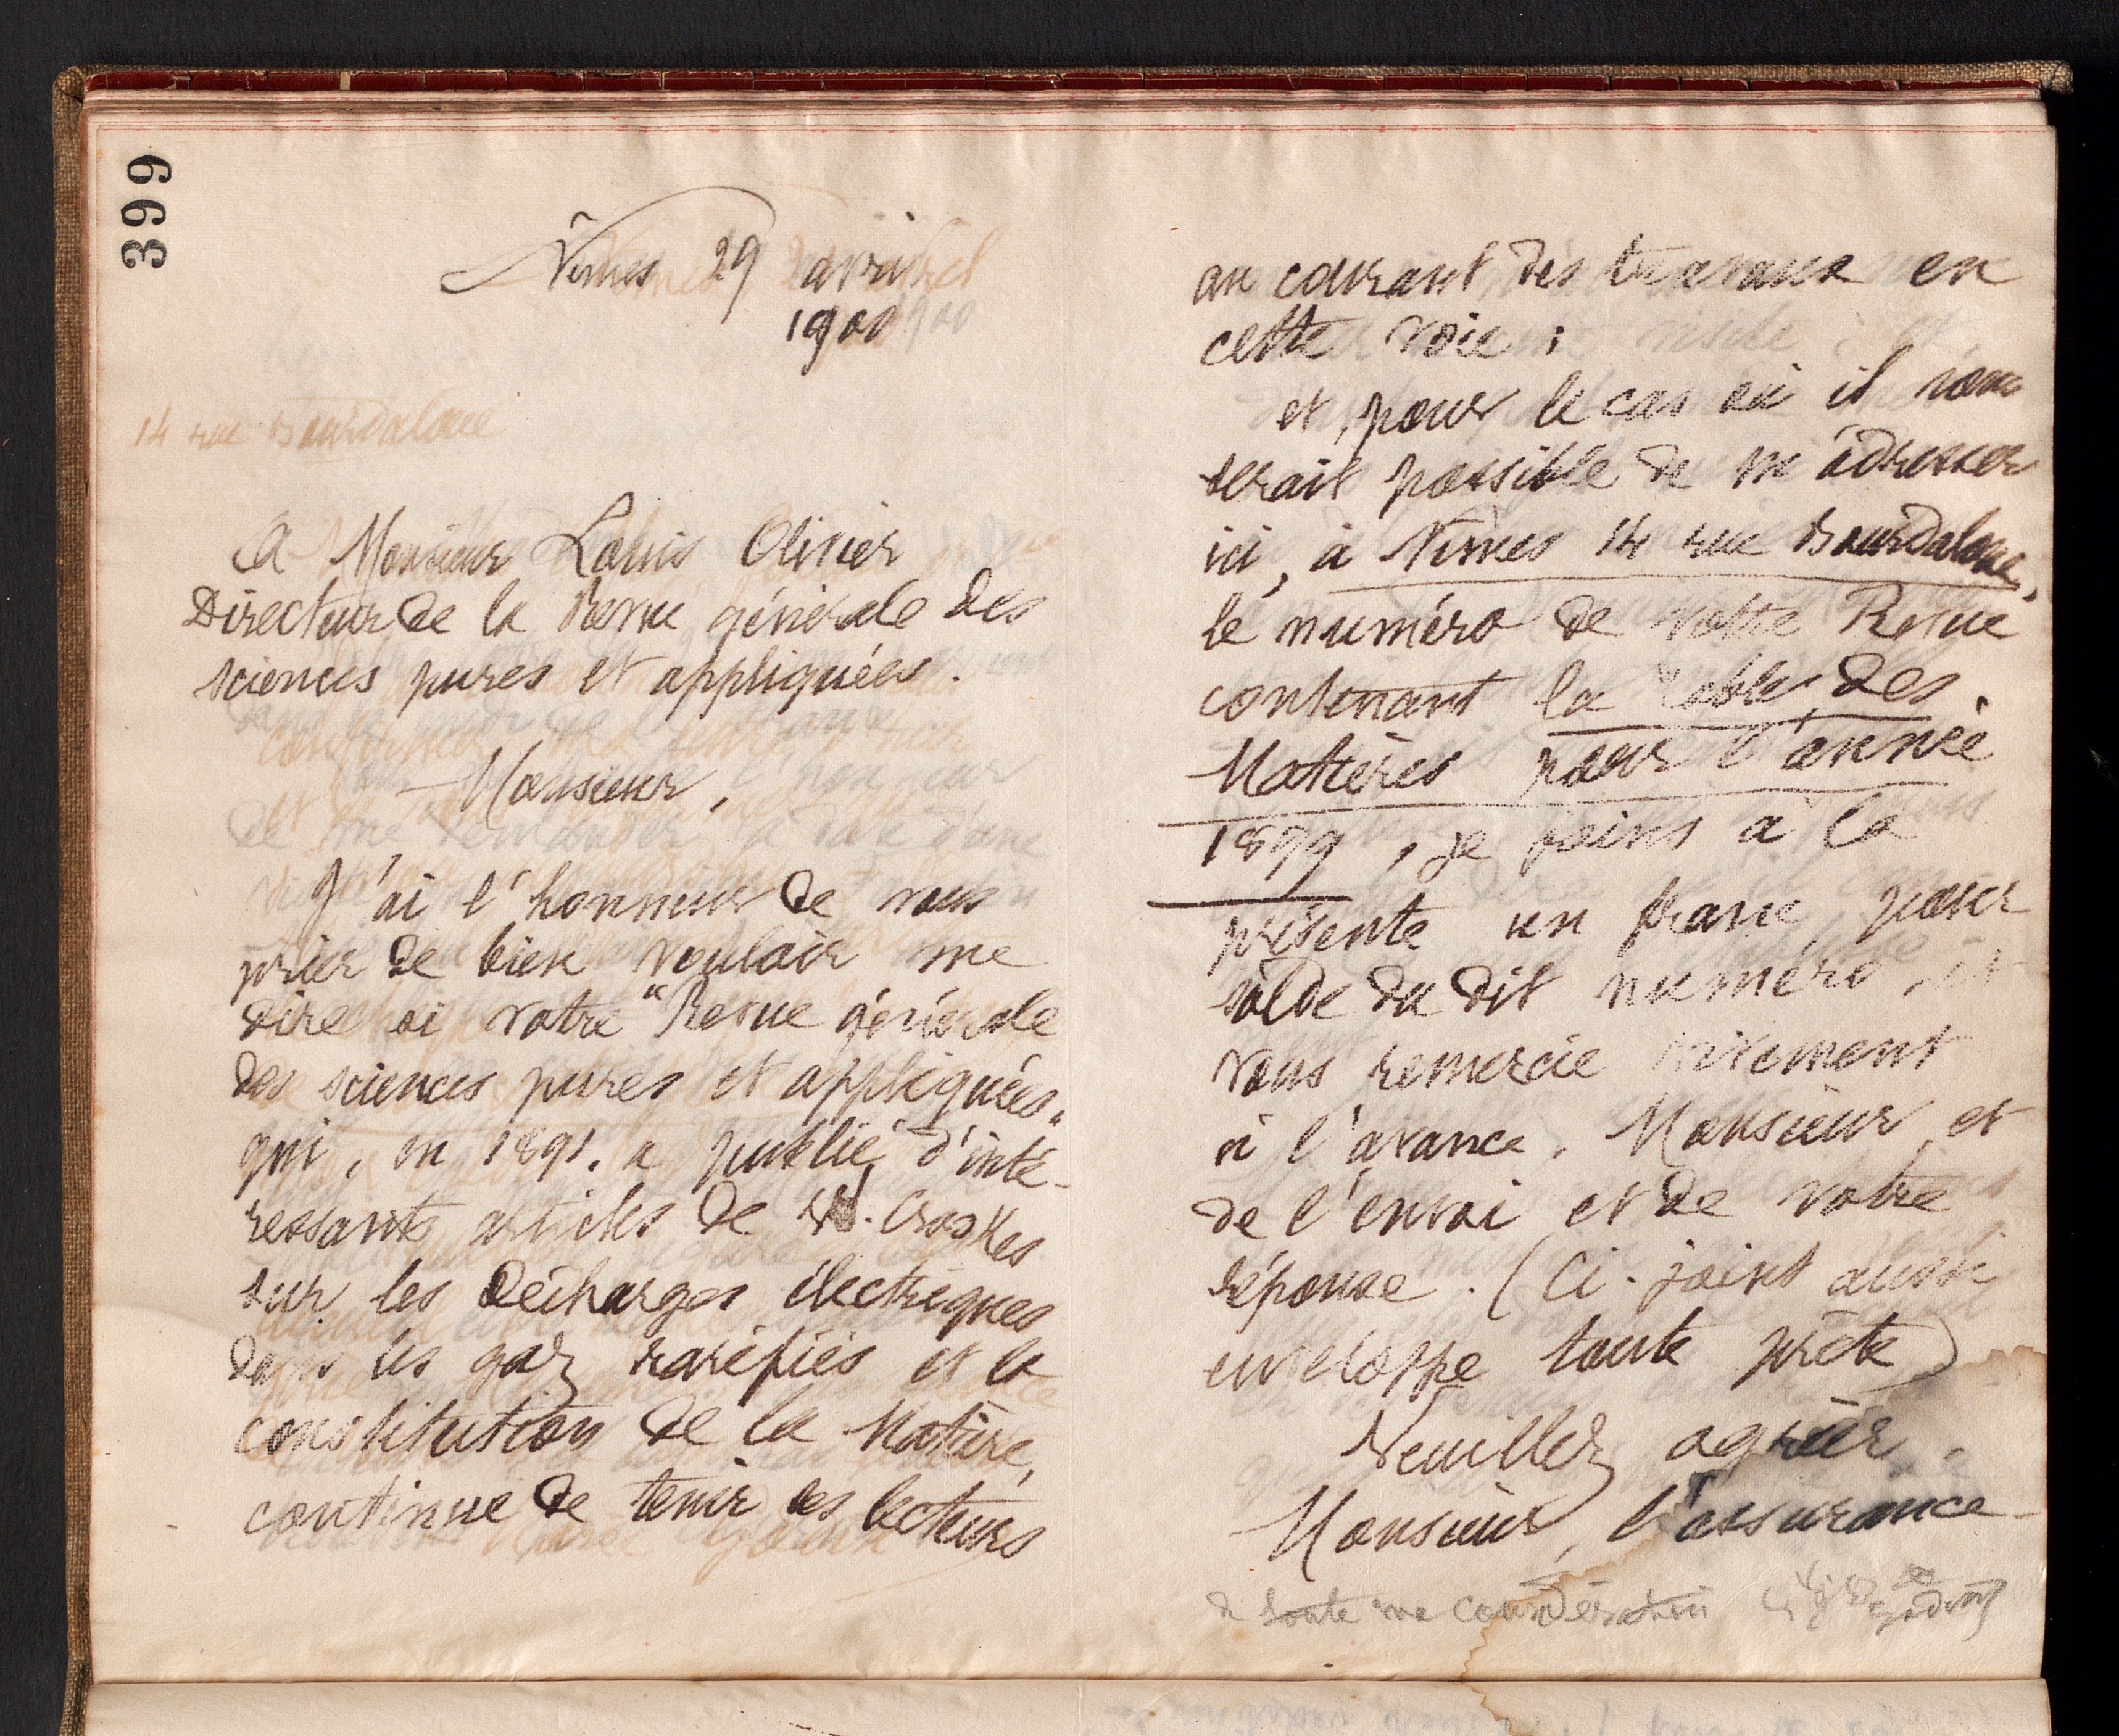 399
Nîmes 29 avril
1900
14 rue Bourdaloue
A Monsieur Louis Olivier
Directeur de la Revue générale des
sciences pures et appliquées.
Monsieur,
J'ai l'honneur de vous
prier de bien vouloir me
dire si votre "Revue générale
des sciences pures et appliquées"
qui, en 1891, a publié d'inté-
ressants articles de W. Crookes
sur les décharges électriques
dans les gaz raréfiés et la
constitution de la Matière,
continue de tenir ses lecteurs
au courant des travaux en
cette voie ;
et, pour le cas où il vous
serait possible de m'adresser
ici, à Nîmes 14 rue Bourdaloue,
le numéro de votre Revue
contenant la Table des
Matières pour l'année
1899, je joins à la
présente un franc, pour
solde du dit numéro, et
vous remercie vivement
à l'avance, Monsieur, et
de l'envoi et de votre
réponse. (Ci-joint aussi
enveloppe toute prête)
Veuillez agréer,
Monsieur, l'assurance
de toute ma considération